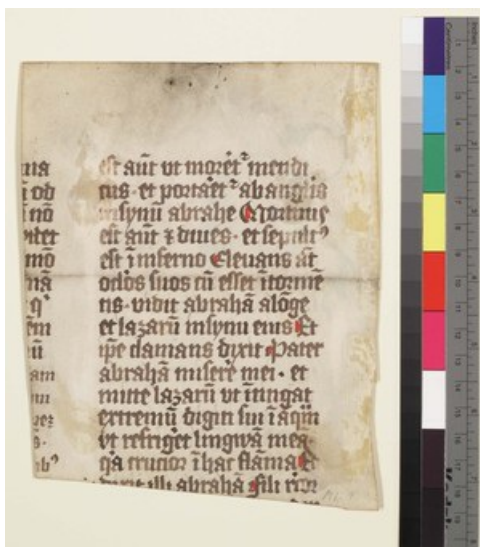 na
t ob
t nō
ritet
mō
nā
q̉
ēm
nū
am
nu
uez
s·
ib᾽
est aūt vt moreret᷑ mendi
cus · et portaret᷑ ab angelis
in synū abrahe Mortuus
est aūt ⁊ diues · et sepult᾽
est ī inferno Eleuans āt
oclos suos cū esset ī tormē
tis · vidit abrahā a lōge
et lazarū in synu eius Et
ip̄e clamans dixit Pater
abrahā miserē mei · et
mitte lazarū vt ītingat
extremū digiti sui ī aq̄m
vt refriget lingwā meā ·
q̄a crucior ī hac flāma Et
dixit illi abrahā Fili recor